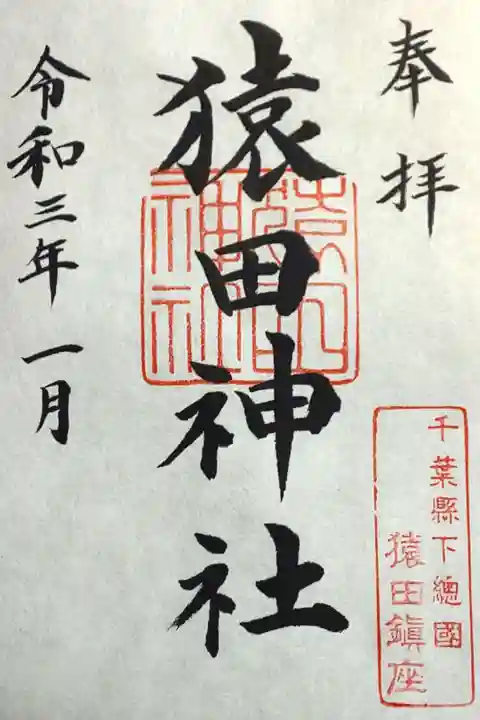 奉拝
千葉縣下總國
猿田鎮座
猿田神社
猿田神社
令和三年一月